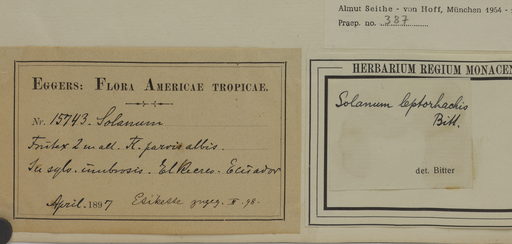 Almut Seithe - von Hoff, München 1954 -
Praep. no. 387
EGGERS: FLORA AMERICAE TROPICAE.
Nr. 15743. Solanum
Frutex 2 m alt. fl. parvis albis.
In sylv. umbrosis. El Recreo. Ecuador
April. 1897 Etikette IX. 98.
HERBARIUM REGIUM MONACEN
Solanum leptorhachis
Bitt.
det. Bitter